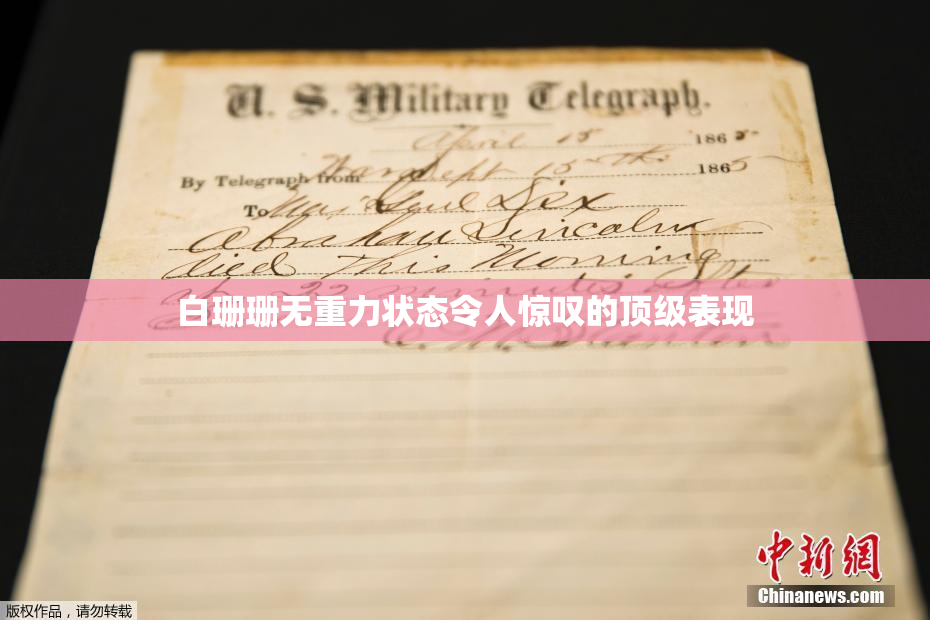 U. S. Military Telegraph.
April 15 1865
By Telegraph from War Dept 15th 1865
To Maj Genl Dix
Abraham Lincoln
died This Morning
at 22 minutes after
白珊珊无重力状态令人惊叹的顶级表现
E. M. Stanton
中新网
Chinanews.com
版权作品，请勿转载